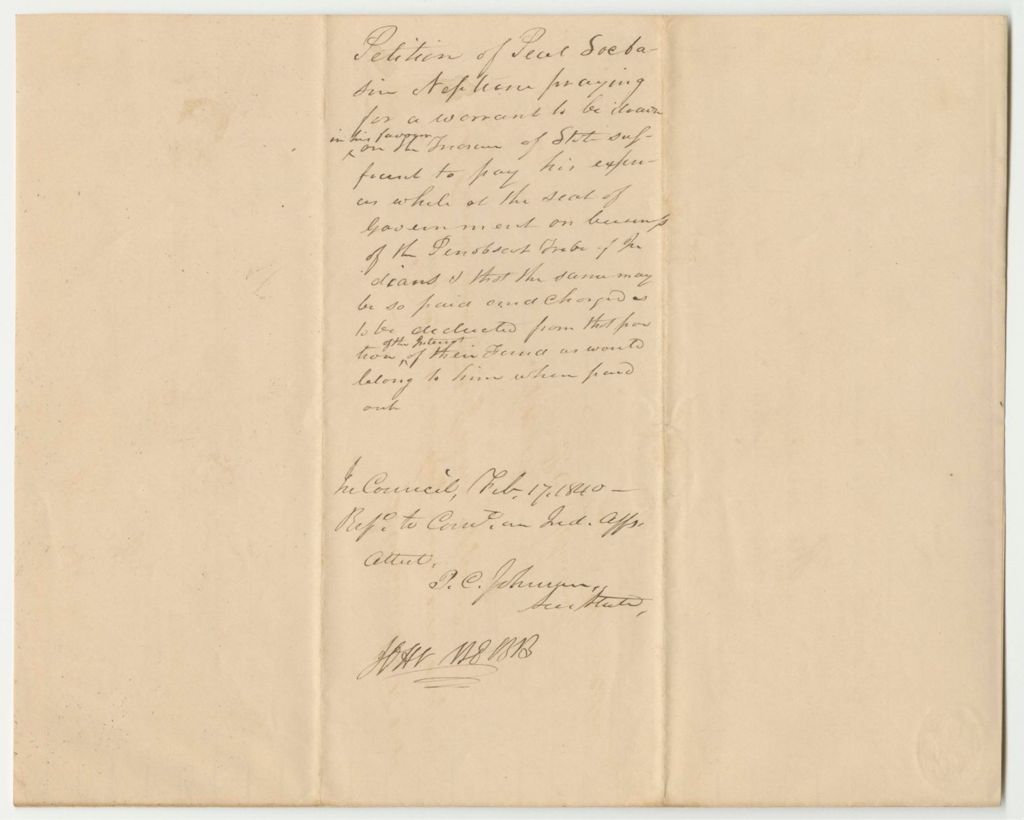 Petition of Peul Socba-
sin Neptune praying
for a warrant to be drawn
in his favour
on the Treasurer of State suf-
ficient to pay his expen-
ces while at the seat of
Government on business
of the Penobscot Tribe of In
dians & that the same may
be so paid and charged as
to be deducted from that por
of the Interest
tion of their Fund as would
belong to him when paid
out
In Council, Feb. 17, 1840 –
Refd. to Come. on Ind. Affs.
Attest,
P. C. Johnson,
Sec. State,